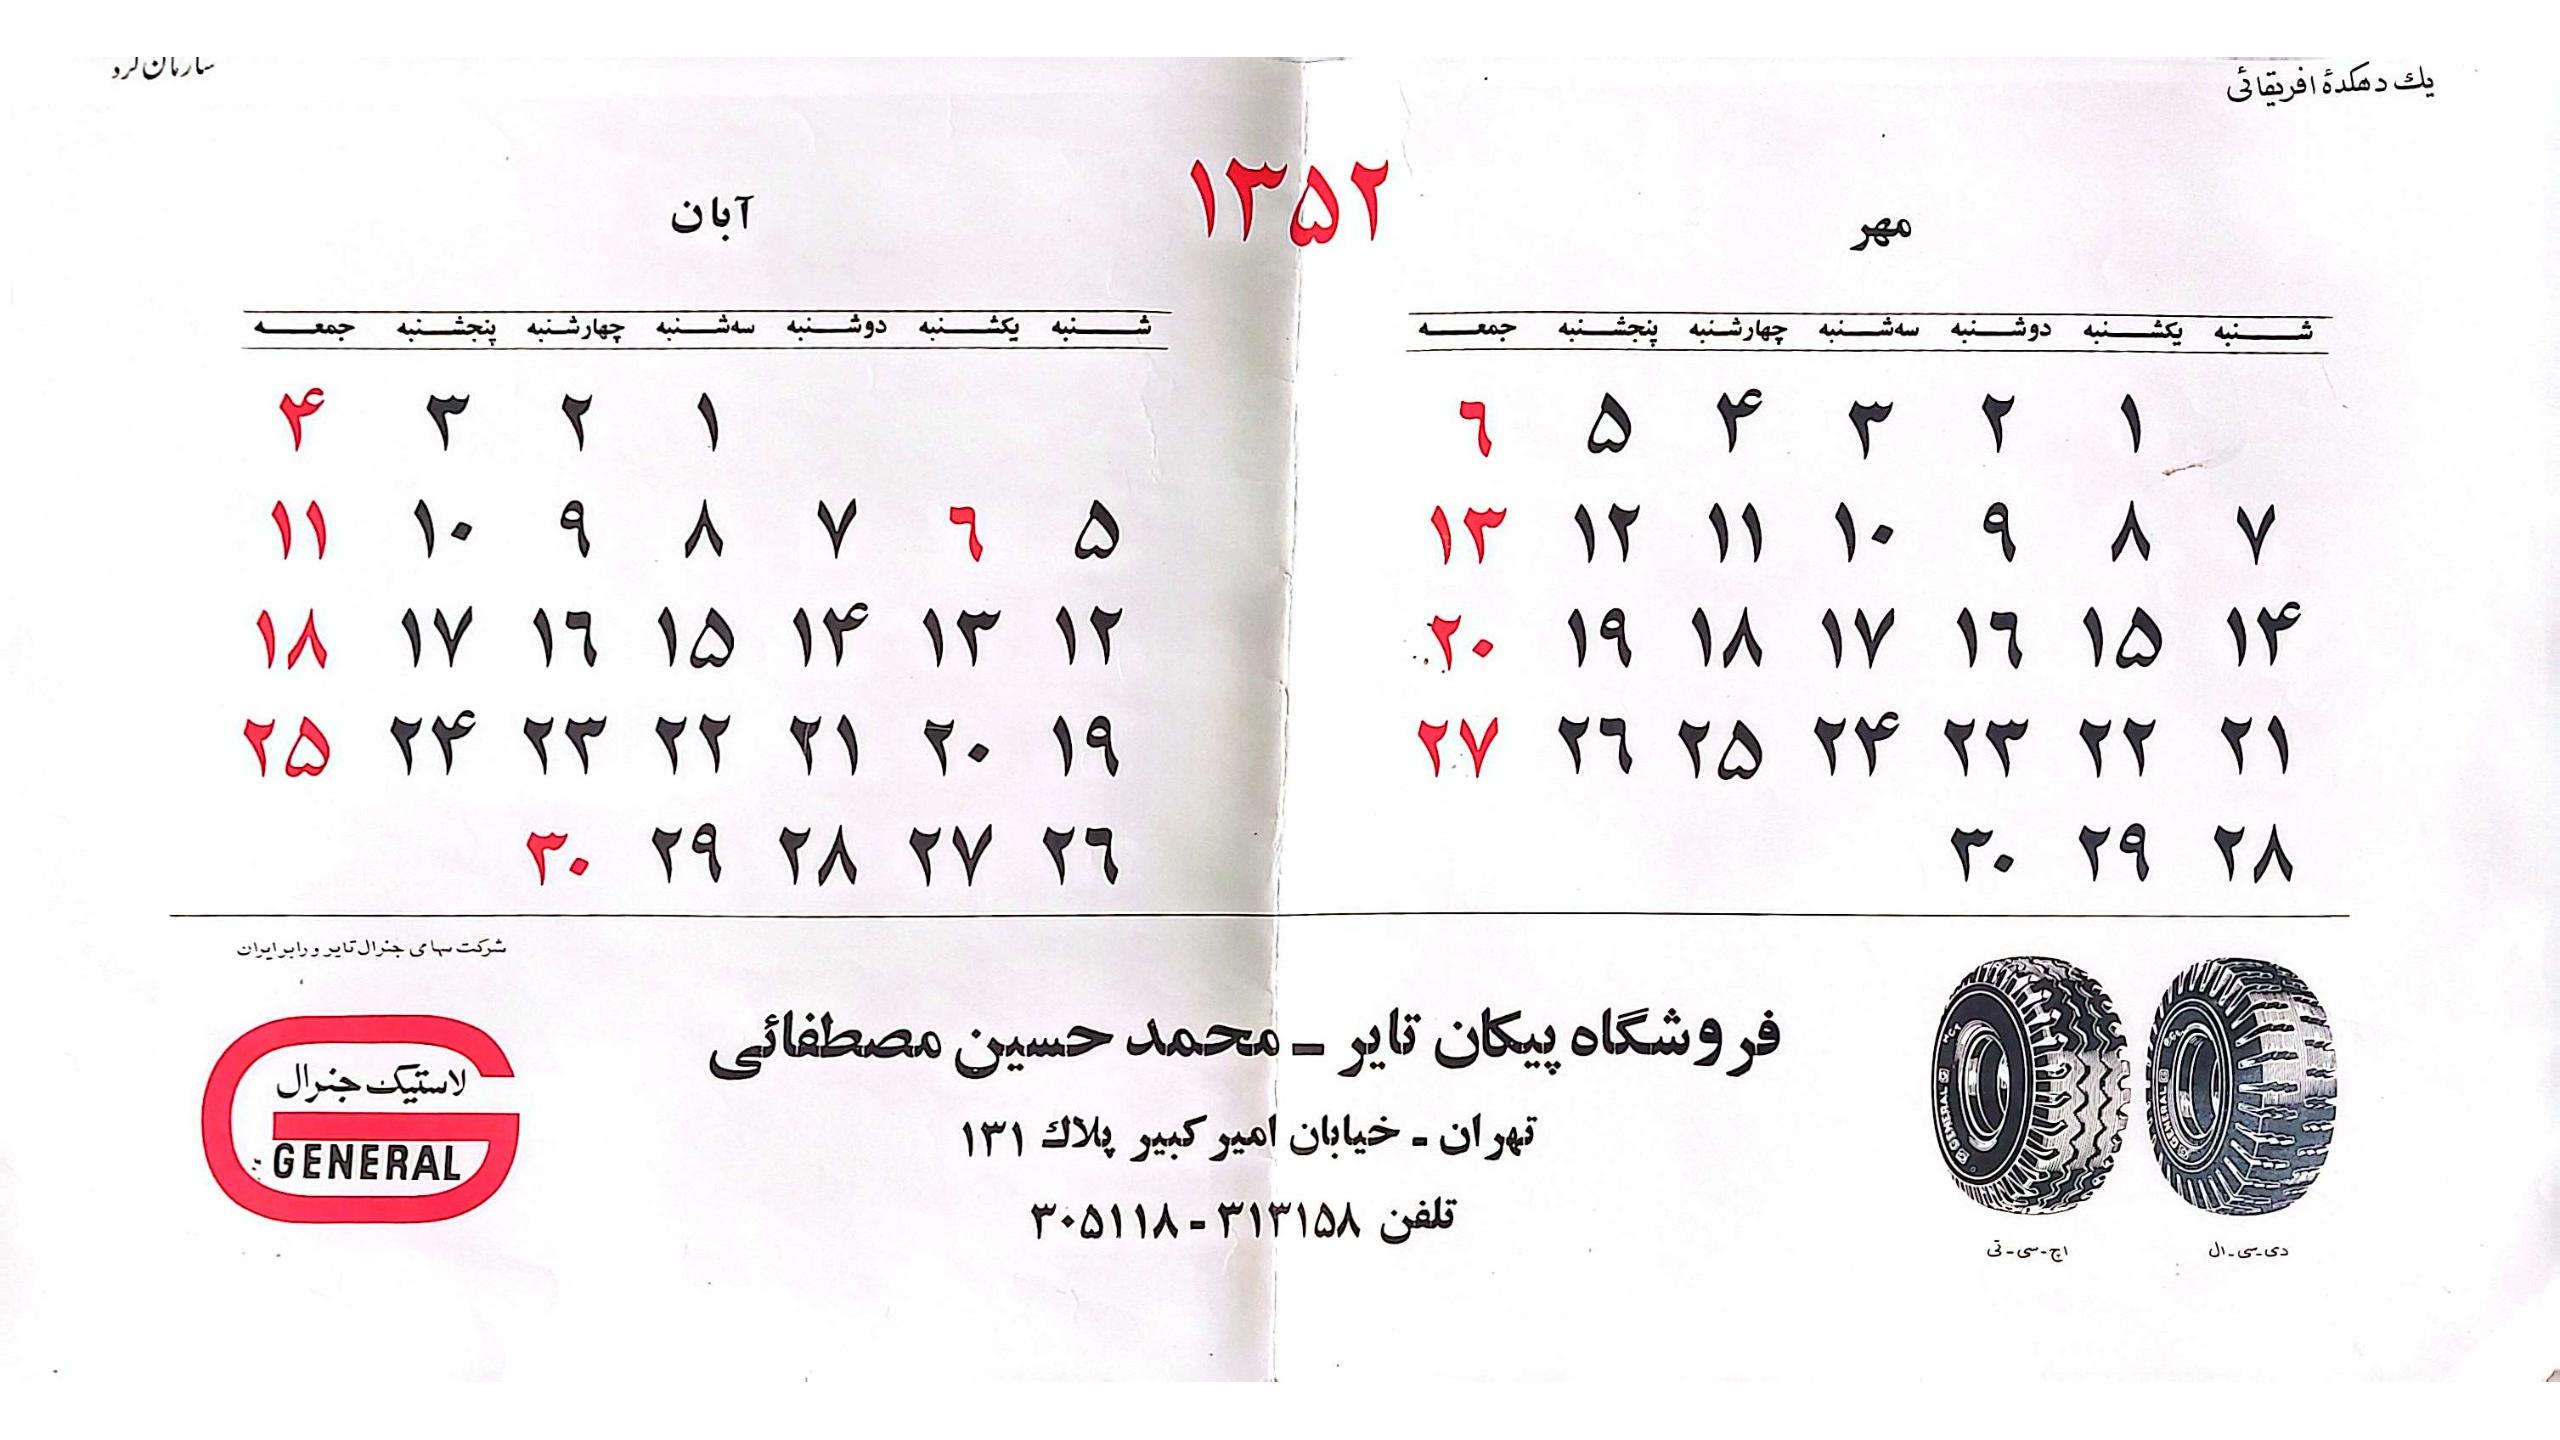 يك دهكدهٔ افریقائی
۱۳۵۲
مهر
شنبه یکشنبه دوشنبه سه‌شنبه چهارشنبه پنجشنبه جمعه
۱ ۲ ۳ ۴ ۵ ٦
۷ ۸ ۹ ۱۰ ۱۱ ۱۲ ۱۳
۱۴ ۱۵ ۱٦ ۱۷ ۱۸ ۱۹ ۲۰
۲۱ ۲۲ ۲۳ ۲۴ ۲۵ ۲٦ ۲۷
۲۸ ۲۹ ۳۰
آبان
شنبه یکشنبه دوشنبه سه‌شنبه چهارشنبه پنجشنبه جمعه
۱ ۲ ۳ ۴
۵ ٦ ۷ ۸ ۹ ۱۰ ۱۱
۱۲ ۱۳ ۱۴ ۱۵ ۱٦ ۱۷ ۱۸
۱۹ ۲۰ ۲۱ ۲۲ ۲۳ ۲۴ ۲۵
۲٦ ۲۷ ۲۸ ۲۹ ۳۰
GENERAL
GENERAL
دی-سی-ال
اچ-سی-تی
فروشگاه پیکان تایر ـ محمد حسین مصطفائی
تهران ـ خیابان امیر کبیر پلاك ۱۳۱
تلفن ۳۱۳۱۵۸ - ۳۰۵۱۱۸
شرکت سهامی جنرال تایر و رابر ایران
لاستیک جنرال
GENERAL